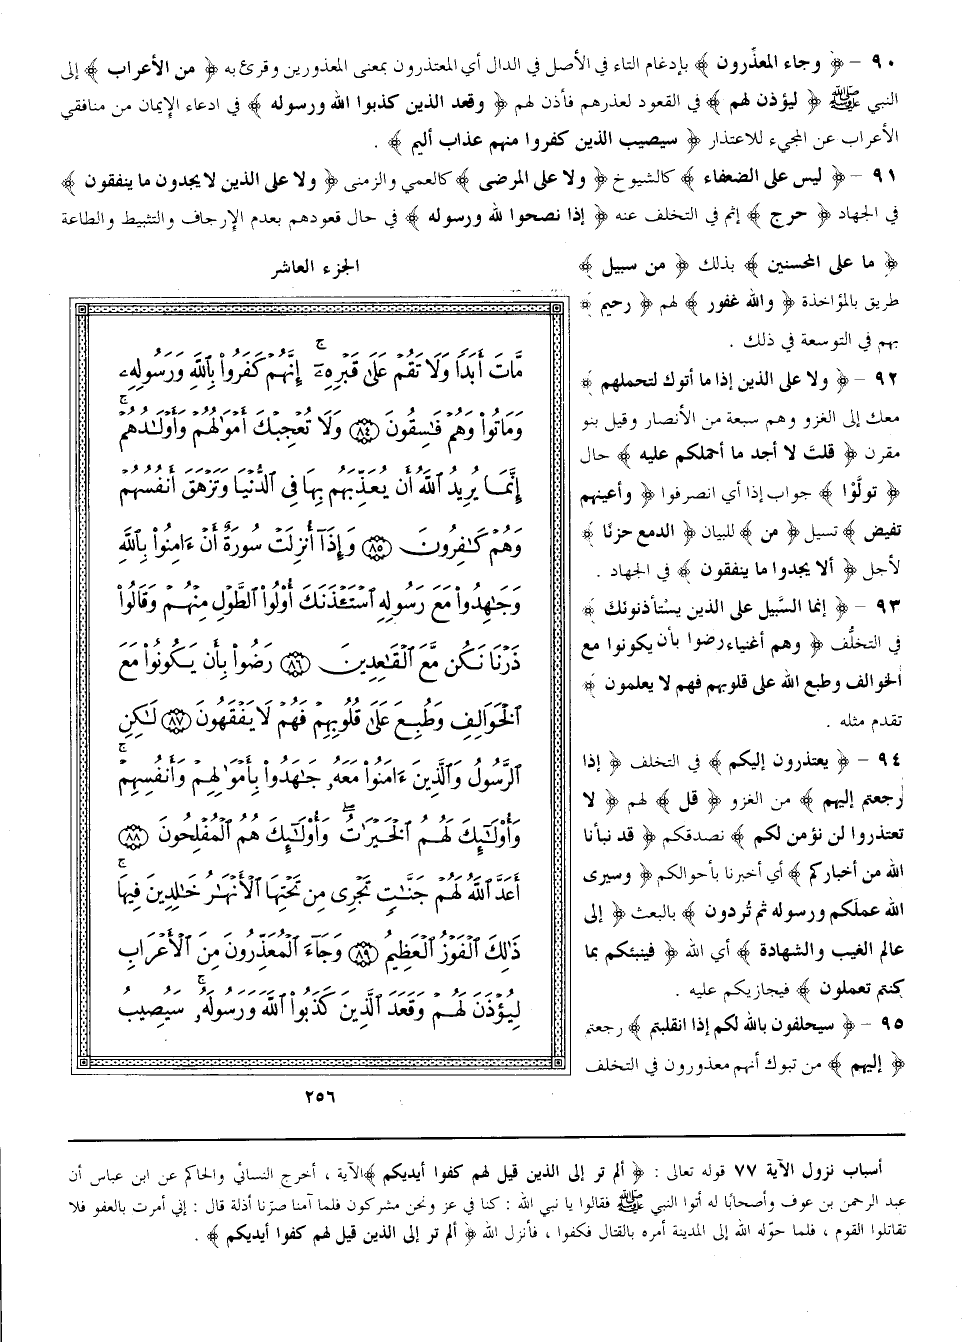 ٩٠ - ﴿ وجاء المعذّرون ﴾ بإدغام التاء في الأصل في الدال أي المعتذرون بمعنى المعذورين وقرئ به ﴿ من الأعراب ﴾ إلى
النبي ﷺ ﴿ ليؤذن لهم ﴾ في القعود لعذرهم فأذن لهم ﴿ وقعد الذين كذبوا الله ورسوله ﴾ في ادعاء الإيمان من منافقي
الأعراب عن المجيء للاعتذار ﴿ سيصيب الذين كفروا منهم عذاب أليم ﴾ .
٩١ - ﴿ ليس على الضعفاء ﴾ كالشيوخ ﴿ ولا على المرضى ﴾ كالعمي والزمنى ﴿ ولا على الذين لا يجدون ما ينفقون ﴾
في الجهاد ﴿ حرج ﴾ إثم في التخلف عنه ﴿ إذا نصحوا لله ورسوله ﴾ في حال قعودهم بعدم الإرجاف والتثبيط والطاعة
﴿ ما على المحسنين ﴾ بذلك ﴿ من سبيل ﴾
طريق بالمؤاخذة ﴿ والله غفور ﴾ لهم ﴿ رحيم ﴾
بهم في التوسعة في ذلك .
٩٢ - ﴿ ولا على الذين إذا ما أتوك لتحملهم ﴾
معك إلى الغزو وهم سبعة من الأنصار وقيل بنو
مقرن ﴿ قلت لا أجد ما أحملكم عليه ﴾ حال
﴿ تولَّوْا ﴾ جواب إذا أي انصرفوا ﴿ وأعينهم
تفيض ﴾ تسيل ﴿ من ﴾ للبيان ﴿ الدمع حزنًا ﴾
لأجل ﴿ ألا يجدوا ما ينفقون ﴾ في الجهاد .
٩٣ - ﴿ إنما السَّبيل على الذين يستأذنونك ﴾
في التخلُّف ﴿ وهم أغنياء رضوا بأن يكونوا مع
الخوالف وطبع الله على قلوبهم فهم لا يعلمون ﴾
تقدم مثله .
٩٤ - ﴿ يعتذرون إليكم ﴾ في التخلف ﴿ إذا
رجعتم إليهم ﴾ من الغزو ﴿ قل ﴾ لهم ﴿ لا
تعتذروا لن نؤمن لكم ﴾ نصدقكم ﴿ قد نبأنا
الله من أخباركم ﴾ أي أخبرنا بأحوالكم ﴿ وسيرى
الله عملكم ورسوله ثم تُردون ﴾ بالبعث ﴿ إلى
عالم الغيب والشهادة ﴾ أي الله ﴿ فينبئكم بما
كنتم تعملون ﴾ فيجازيكم عليه .
٩٥ - ﴿ سيحلفون بالله لكم إذا انقلبتم ﴾ رجعتم
﴿ إليهم ﴾ من تبوك أنهم معذورون في التخلف
الجزء العاشر
مَّاتَ أَبَدًا وَلَا تَقُمْ عَلَىٰ قَبْرِهِۦٓ ۚ إِنَّهُمْ كَفَرُوا۟ بِٱللَّهِ وَرَسُولِهِۦ
وَمَاتُوا۟ وَهُمْ فَـٰسِقُونَ ﴿٨٤﴾ وَلَا تُعْجِبْكَ أَمْوَٰلُهُمْ وَأَوْلَـٰدُهُمْ ۚ
إِنَّمَا يُرِيدُ ٱللَّهُ أَن يُعَذِّبَهُم بِهَا فِى ٱلدُّنْيَا وَتَزْهَقَ أَنفُسُهُمْ
وَهُمْ كَـٰفِرُونَ ﴿٨٥﴾ وَإِذَآ أُنزِلَتْ سُورَةٌ أَنْ ءَامِنُوا۟ بِٱللَّهِ
وَجَـٰهِدُوا۟ مَعَ رَسُولِهِ ٱسْتَـْٔذَنَكَ أُو۟لُوا۟ ٱلطَّوْلِ مِنْهُمْ وَقَالُوا۟
ذَرْنَا نَكُن مَّعَ ٱلْقَـٰعِدِينَ ﴿٨٦﴾ رَضُوا۟ بِأَن يَكُونُوا۟ مَعَ
ٱلْخَوَالِفِ وَطُبِعَ عَلَىٰ قُلُوبِهِمْ فَهُمْ لَا يَفْقَهُونَ ﴿٨٧﴾ لَـٰكِنِ
ٱلرَّسُولُ وَٱلَّذِينَ ءَامَنُوا۟ مَعَهُۥ جَـٰهَدُوا۟ بِأَمْوَٰلِهِمْ وَأَنفُسِهِمْ ۚ
وَأُو۟لَـٰٓئِكَ لَهُمُ ٱلْخَيْرَٰتُ ۖ وَأُو۟لَـٰٓئِكَ هُمُ ٱلْمُفْلِحُونَ ﴿٨٨﴾
أَعَدَّ ٱللَّهُ لَهُمْ جَنَّـٰتٍ تَجْرِى مِن تَحْتِهَا ٱلْأَنْهَـٰرُ خَـٰلِدِينَ فِيهَا ۚ
ذَٰلِكَ ٱلْفَوْزُ ٱلْعَظِيمُ ﴿٨٩﴾ وَجَآءَ ٱلْمُعَذِّرُونَ مِنَ ٱلْأَعْرَابِ
لِيُؤْذَنَ لَهُمْ وَقَعَدَ ٱلَّذِينَ كَذَبُوا۟ ٱللَّهَ وَرَسُولَهُۥ ۚ سَيُصِيبُ
٢٥٦
أسباب نزول الآية ٧٧ قوله تعالى : ﴿ ألم تر إلى الذين قيل لهم كفوا أيديكم ﴾الآية ، أخرج النسائي والحاكم عن ابن عباس أن
عبد الرحمن بن عوف وأصحابًا له أتوا النبي ﷺ فقالوا يا نبي الله : كنا في عز ونحن مشركون فلما آمنا صرنا أذلة قال : إني أمرت بالعفو فلا
تقاتلوا القوم ، فلما حوّله الله إلى المدينة أمره بالقتال فكفوا ، فأنزل الله ﴿ ألم تر إلى الذين قيل لهم كفوا أيديكم ﴾ .